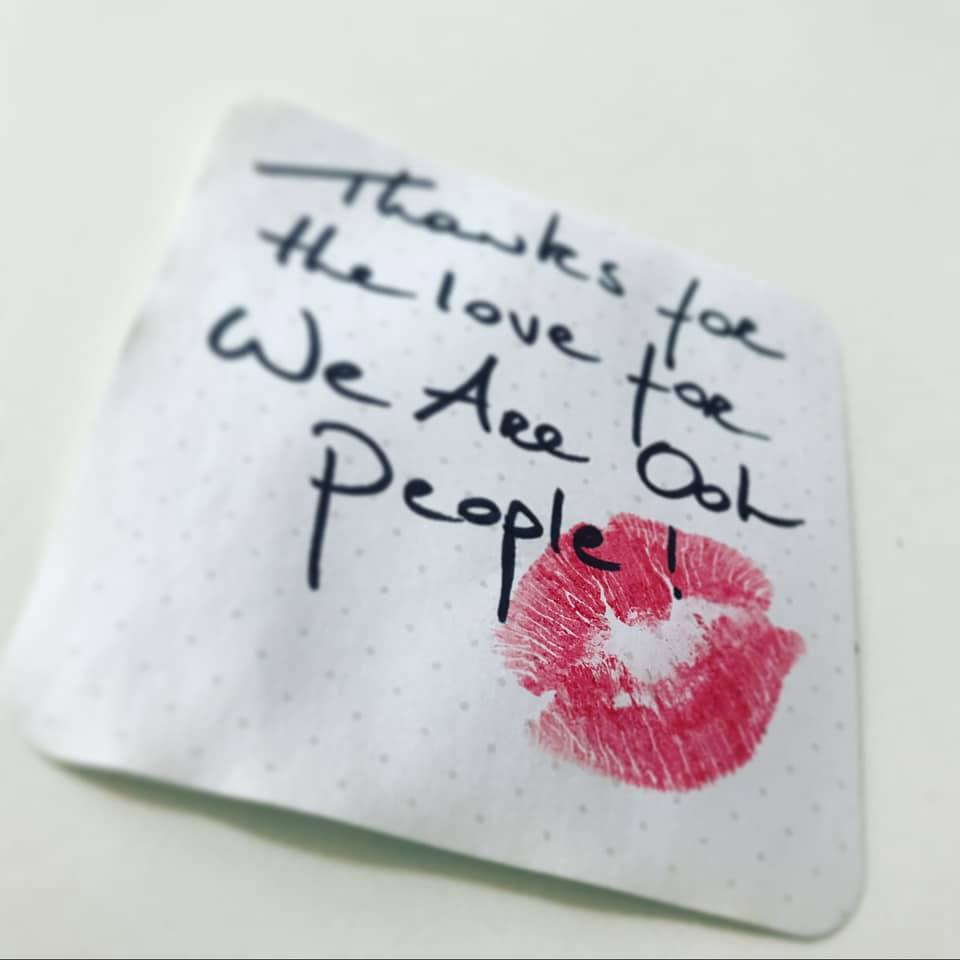 Thanks for
the love for
We Are Ooh
People!